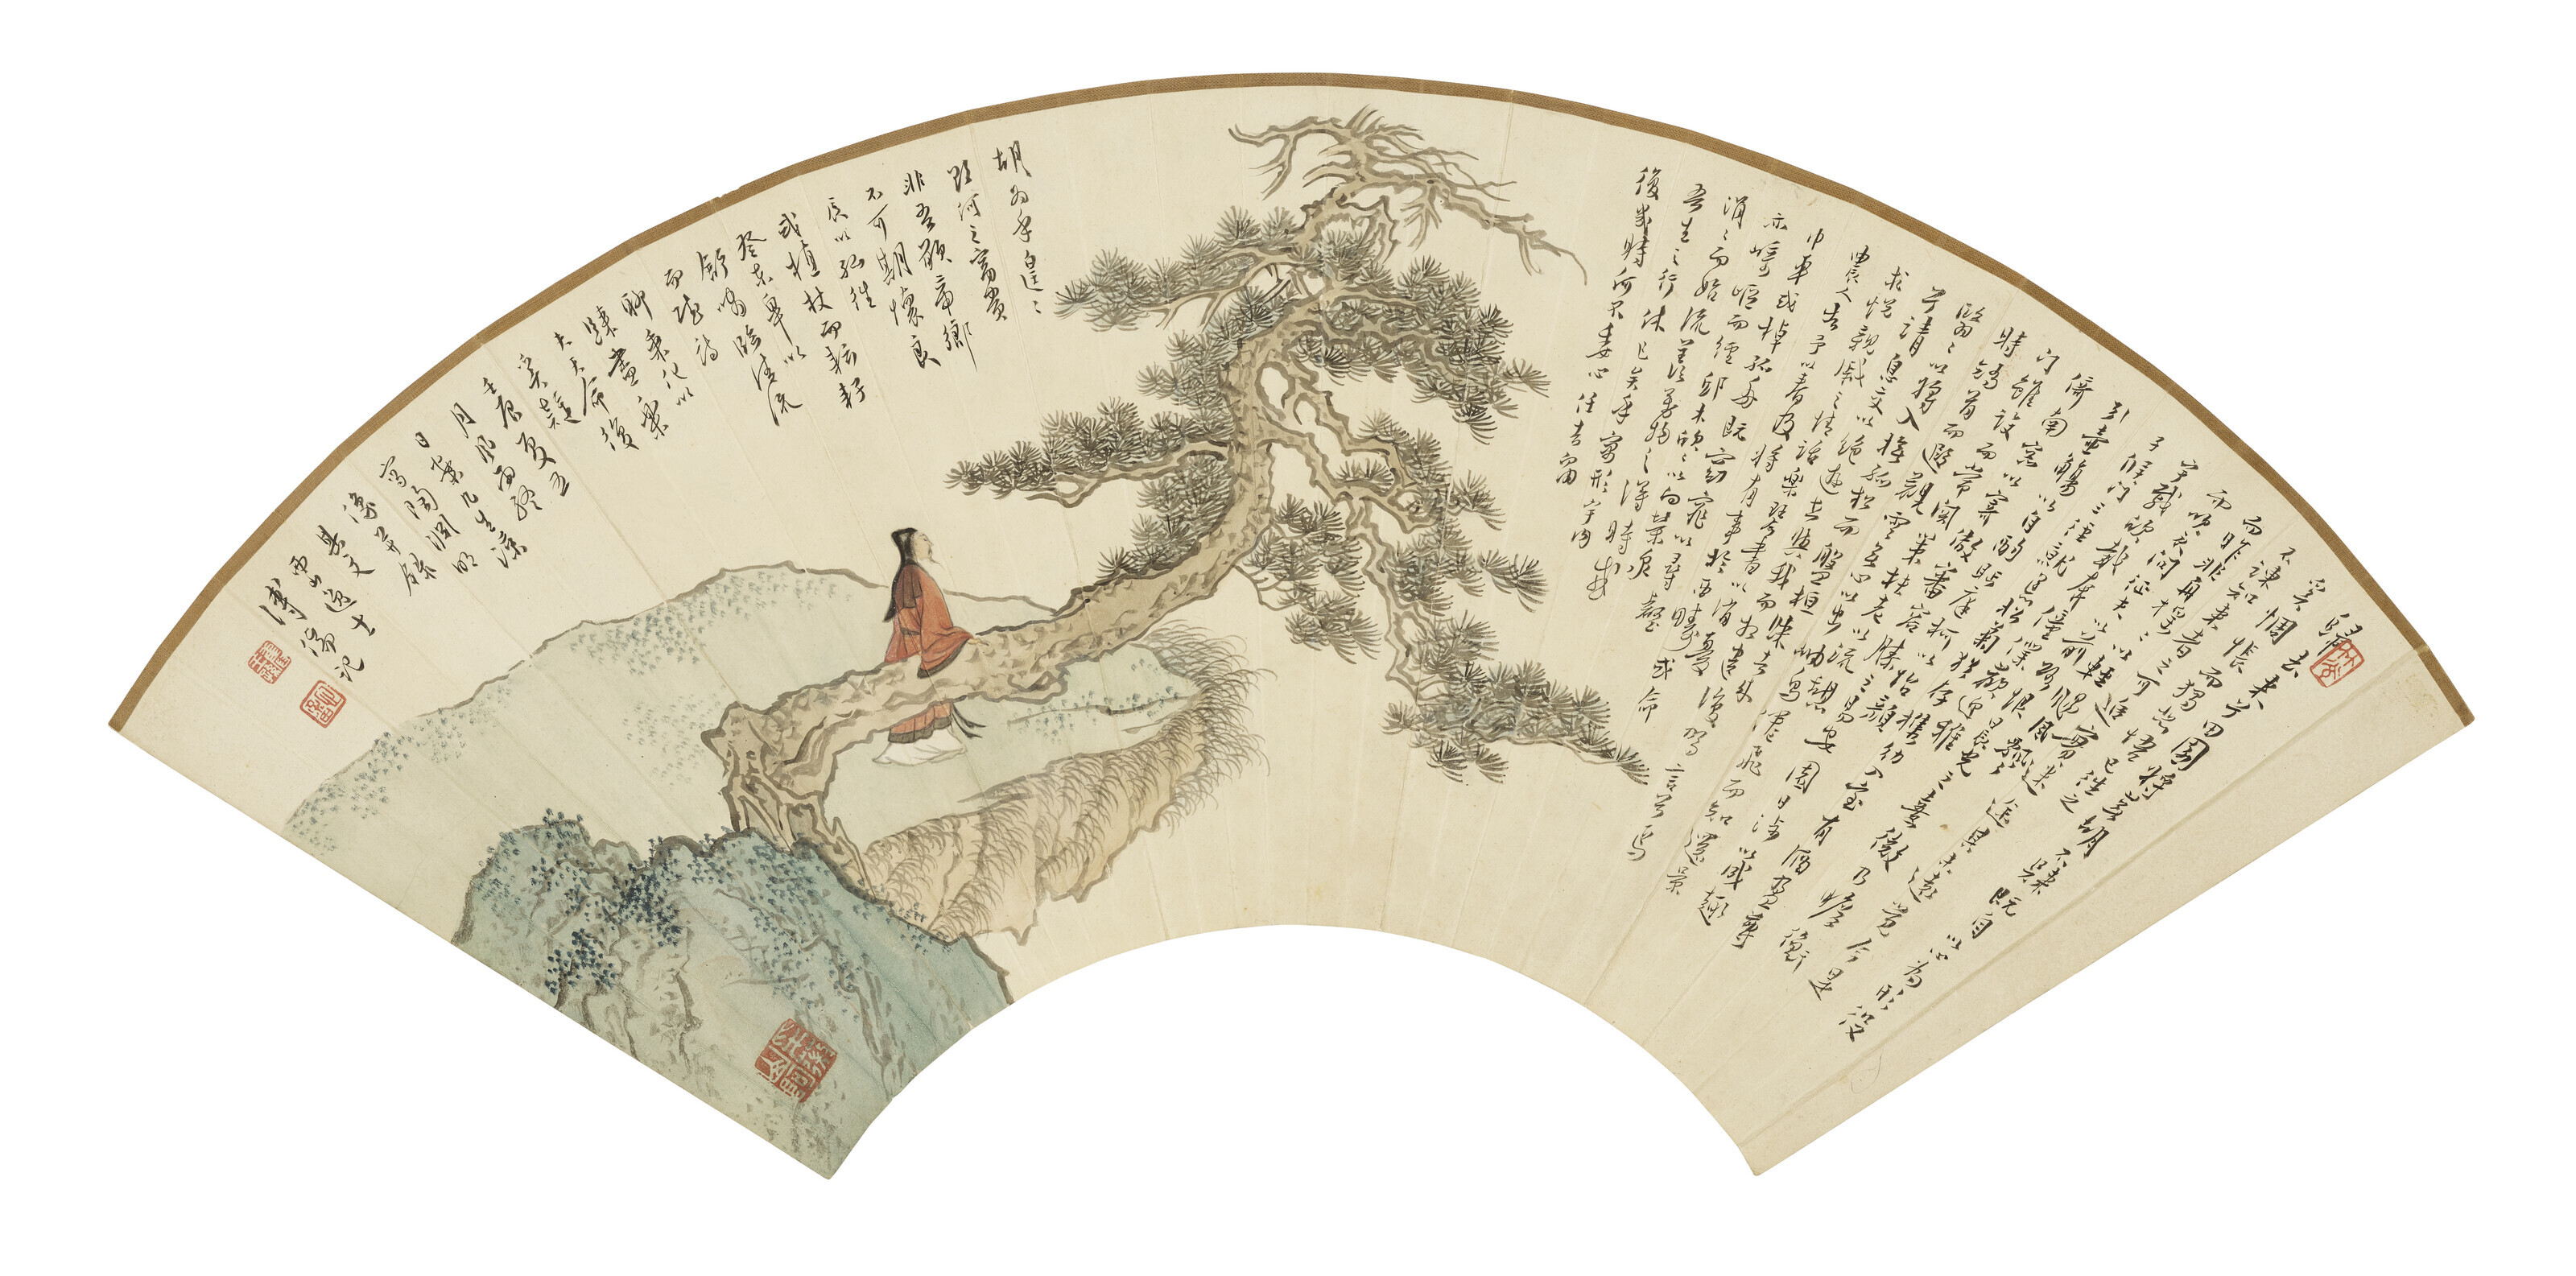 歸去來兮田園將蕪胡不歸既自以為形役
奚惆悵而獨悲悟已往之
不諫知來者之可追迷途其未遠覺今是
而昨非舟搖〻以輕颺風飄〻
而吹衣問征夫以前路恨晨光之熹微乃瞻衡
宇載欣載奔僮僕歡迎稚
子候門三徑就荒松菊猶存攜幼入室有酒盈罇
引壺觴以自酌眄庭柯以怡顏
倚南窗以寄傲審容膝之易安園日涉以成趣
門雖設而常關策扶老以流憩
時矯首而遐觀雲無心以出岫鳥倦飛而知還景
翳〻以將入撫孤松而盤桓歸去來
兮請息交以絕遊世與我而相遺復駕言兮焉
求悅親戚之情話樂琴書以消憂
農人告予以春及將有事於西疇或命
巾車或棹孤舟既窈窕以尋壑
亦崎嶇而經邱木欣〻以向榮泉
涓〻而始流羨萬物之得時感
吾生之行休已矣乎寓形宇內
復幾時何不委心任去留
胡為乎遑〻
欲何之富貴
非吾願帝鄉
不可期懷良
辰以孤往
或植杖而耘耔
登東皋以
舒嘯臨清流
而賦詩
聊乘化以
歸盡樂
夫天命復
奚疑
壬辰夏五
月風雨終
日棐几生涼
寫陶淵明
像并錄
其文
西山逸士
溥儒記